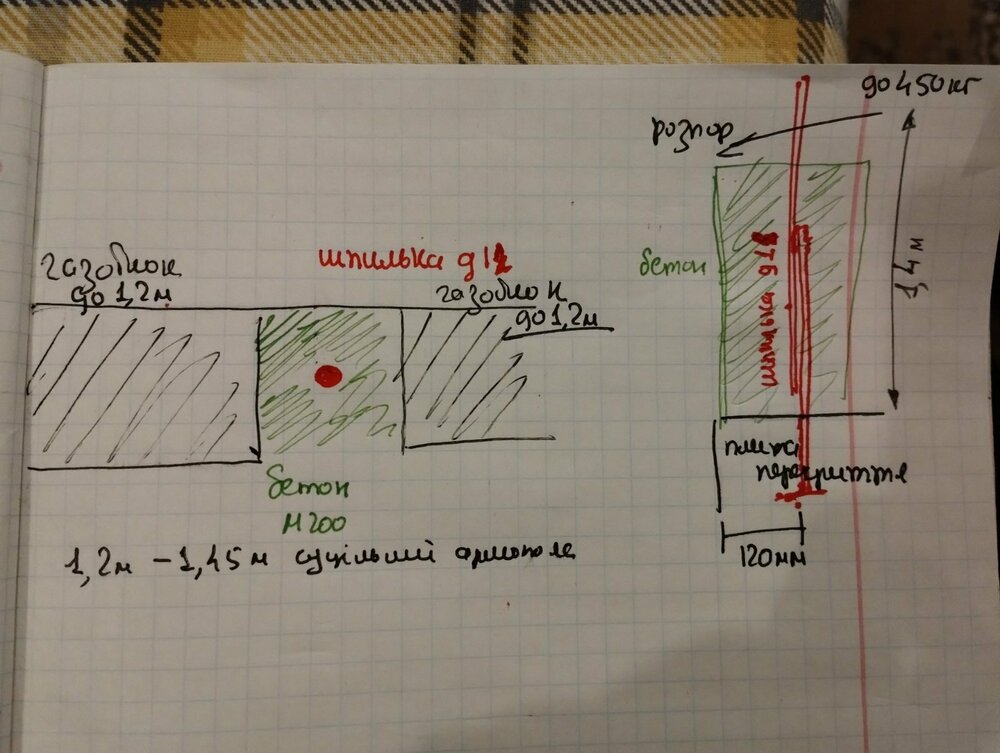 газоблок
до 1,2м
шпилька д12
газоблок
до 1,2м
бетон
М200
1,2м - 1,45м суцільний армопояс
до 450кг
розпор
бетон
шпилька
1,4м
плита
перекриття
120мм